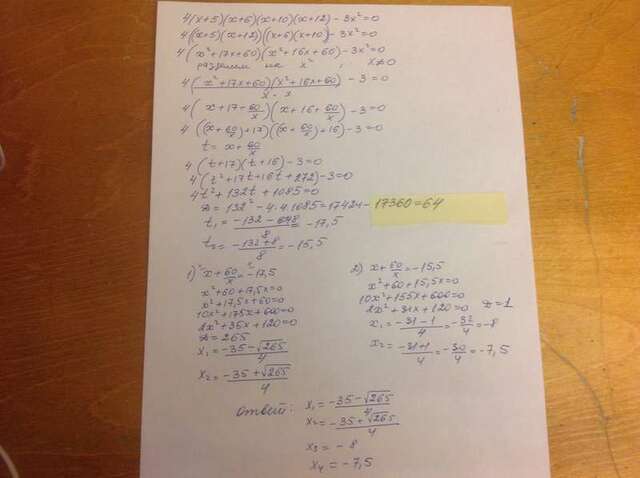 4(x+5)(x+6)(x+10)(x+12)-3x²=0
4(x+5)(x+12)(x+6)(x+10)-3x²=0
4(x²+17x+60)(x²+16x+60)-3x²=0
разделим на x², x≠0
4(x²+17x+60)(x²+16x+60)/x·x-3=0
4(x+17+60/x)(x+16+60/x)-3=0
4((x+60/x)+17)((x+60/x)+16)-3=0
t=x+60/x
4(t+17)(t+16)-3=0
4(t²+17t+16t+272)-3=0
4t²+132t+1085=0
D=132²-4·4·1085=17424-17360=64
t₁=-132-8/8=-17,5
t₂=-132+8/8=-15,5
1) x+60/x=-17,5
x²+60+17,5x=0
x²+17,5x+60=0
10x²+175x+600=0
2x²+35x+120=0
D=265
x₁=-35-√265/4
x₂=-35+√265/4
2) x+60/x=-15,5
x²+60+15,5x=0
10x²+155x+600=0
2x²+31x+120=0 D=1
x₁=-31-1/4=-32/4=-8
x₂=-31+1/4=-30/4=-7,5
Ответ: x₁=-35-√265/4
x₂=-35+√265/4
x₃=-8
x₄=-7,5